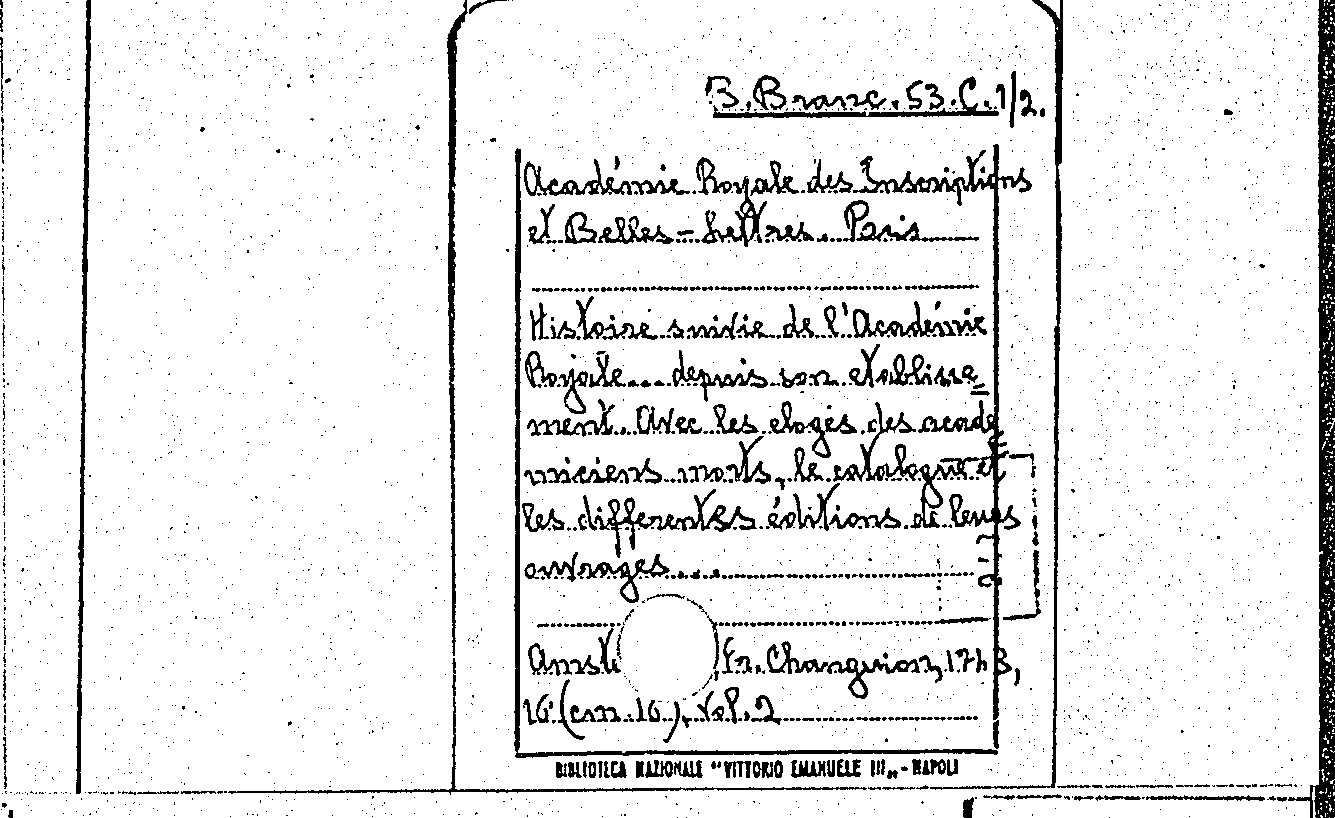 B. Branc. 53. C. 1/2.
Académie Royale des Inscriptions
et Belles-Lettres. Paris
Histoire suivie de l'Académie
Royale... depuis son etablisse
ment. Avec les eloges des acade
miciens morts, le catalogue et
les differentes éditions de leurs
ouvrages...
Amste Fr. Changuion, 1743,
16° (cm. 16). Vol. 2
BIBLIOTECA NAZIONALE "VITTORIO EMANUELE III„ - NAPOLI